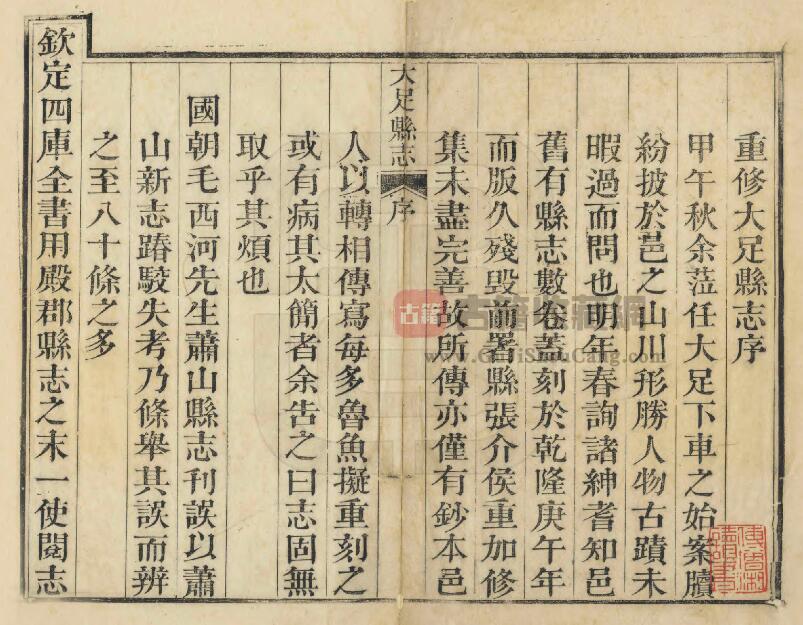 重修大足縣志序
甲午秋余蒞任大足下車之始案牘
紛披於邑之山川形勝人物古蹟未
暇過而問也明年春詢諸紳耆知邑
舊有縣志數卷蓋刻於乾隆庚午年
而版久殘毀前署縣張介侯重加修
集未盡完善故所傳亦僅有鈔本邑
大足縣志
序
人以轉相傳寫每多魯魚擬重刻之
或有病其太簡者余告之曰志固無
取乎其煩也
國朝毛西河先生蕭山縣志刊誤以蕭
山新志踳駮失考乃條舉其誤而辨
之至八十條之多
欽定四庫全書用殿郡縣志之末一使閱志
古籍
古籍收藏網
www.GuJiShuCang.com